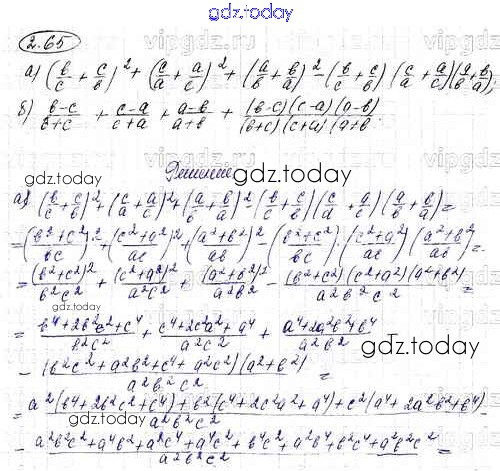 gdz.today
2.65
а) (в/c + c/в)² + (c/a + a/c)² + (a/в + в/a)² - (в/c + c/в) (c/a + a/c)(a/в + в/a);
б) (в-c)/(в+c) + (c-a)/(c+a) + (a-в)/(a+в) + (в-c)(c-a)(a-в)/(в+c)(c+a)(a+в).
Решение
gdz.today
gdz.today
а) (в/c + c/в)² + (c/a + a/c)² + (a/в + в/a)² - (в/c + c/в)(c/a + a/c)(a/в + в/a) =
= ((в²+c²)/вc)² + ((c²+a²)/ac)² + ((a²+в²)/aв)² - ((в²+c²)/вc)·((c²+a²)/ac)·((a²+в²)/aв) =
= (в²+c²)²/в²c² + (c²+a²)²/a²c² + (a²+в²)²/a²в² - (в²+c²)(c²+a²)(a²+в²)/a²в²c² =
gdz.today
= (в⁴+2в²c²+c⁴)/в²c² + (c⁴+2c²a²+a⁴)/a²c² + (a⁴+2a²в²+в⁴)/a²в² -
gdz.today
- (в²c²+a²в²+c⁴+a²c²)(a²+в²)/a²в²c² =
= a²(в⁴+2в²c²+c⁴)+в²(c⁴+2c²a²+a⁴)+c²(a⁴+2a²в²+в⁴)/a²в²c² -
gdz.today
gdz.today
- (a²в²c²+a⁴в²+a²c⁴+a⁴c²+в⁴c²+a²в⁴+в²c⁴+a²в²c²)/a²в²c² =